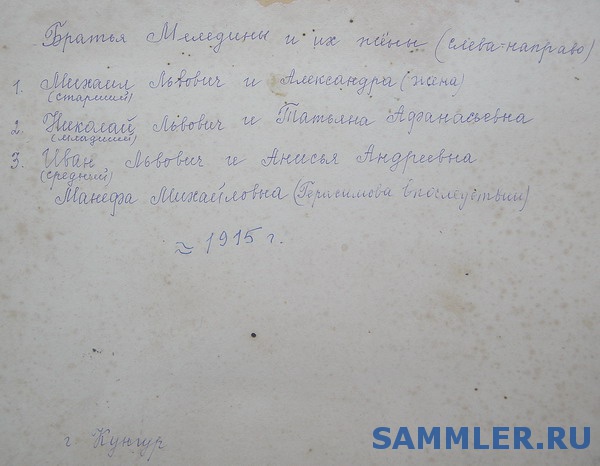 Братья Меледины и их жёны (слева-направо)
1. Михаил Львович и Александра (жена)
(старший)
2. Николай Львович и Татьяна Афанасьевна
(младший)
3. Иван Львович и Анисья Андреевна
(средний)
Манефа Михайловна (Герасимова впоследствии)
≈ 1915 г.
г Кунгур
SAMMLER.RU